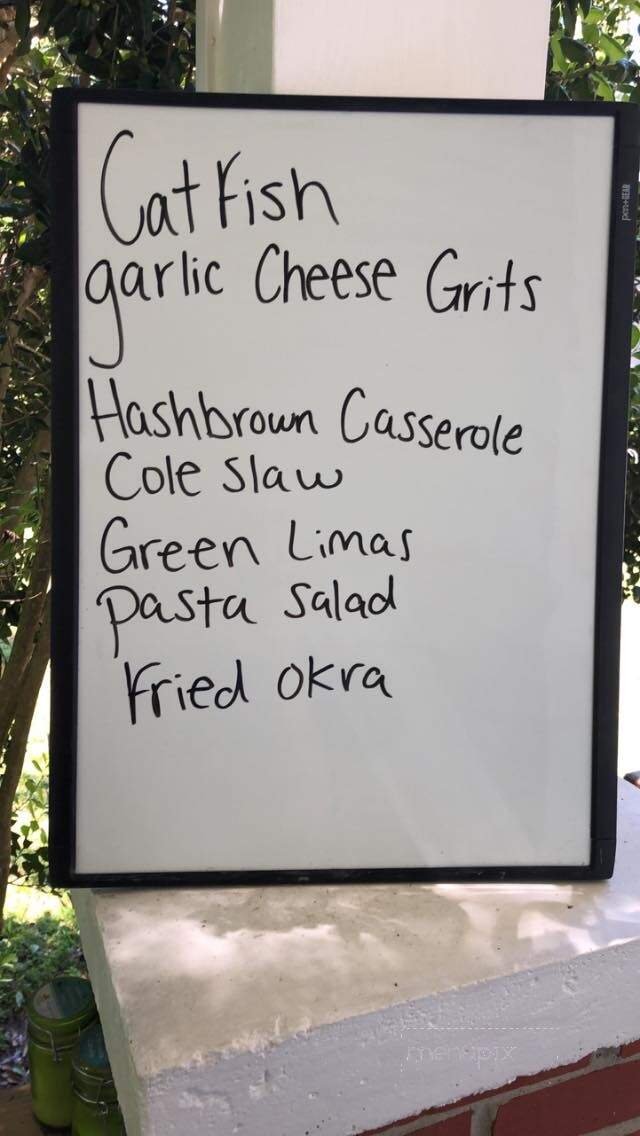 Catfish
garlic Cheese Grits
Hashbrown Casserole
Cole slaw
Green Limas
pasta salad
Fried okra
pen+GEAR
menupix